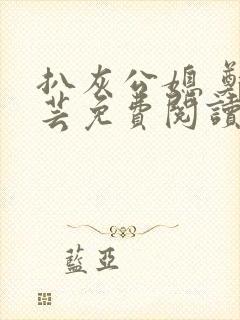 扒灰公媳 鄭
芸免費閱讀
藍亞